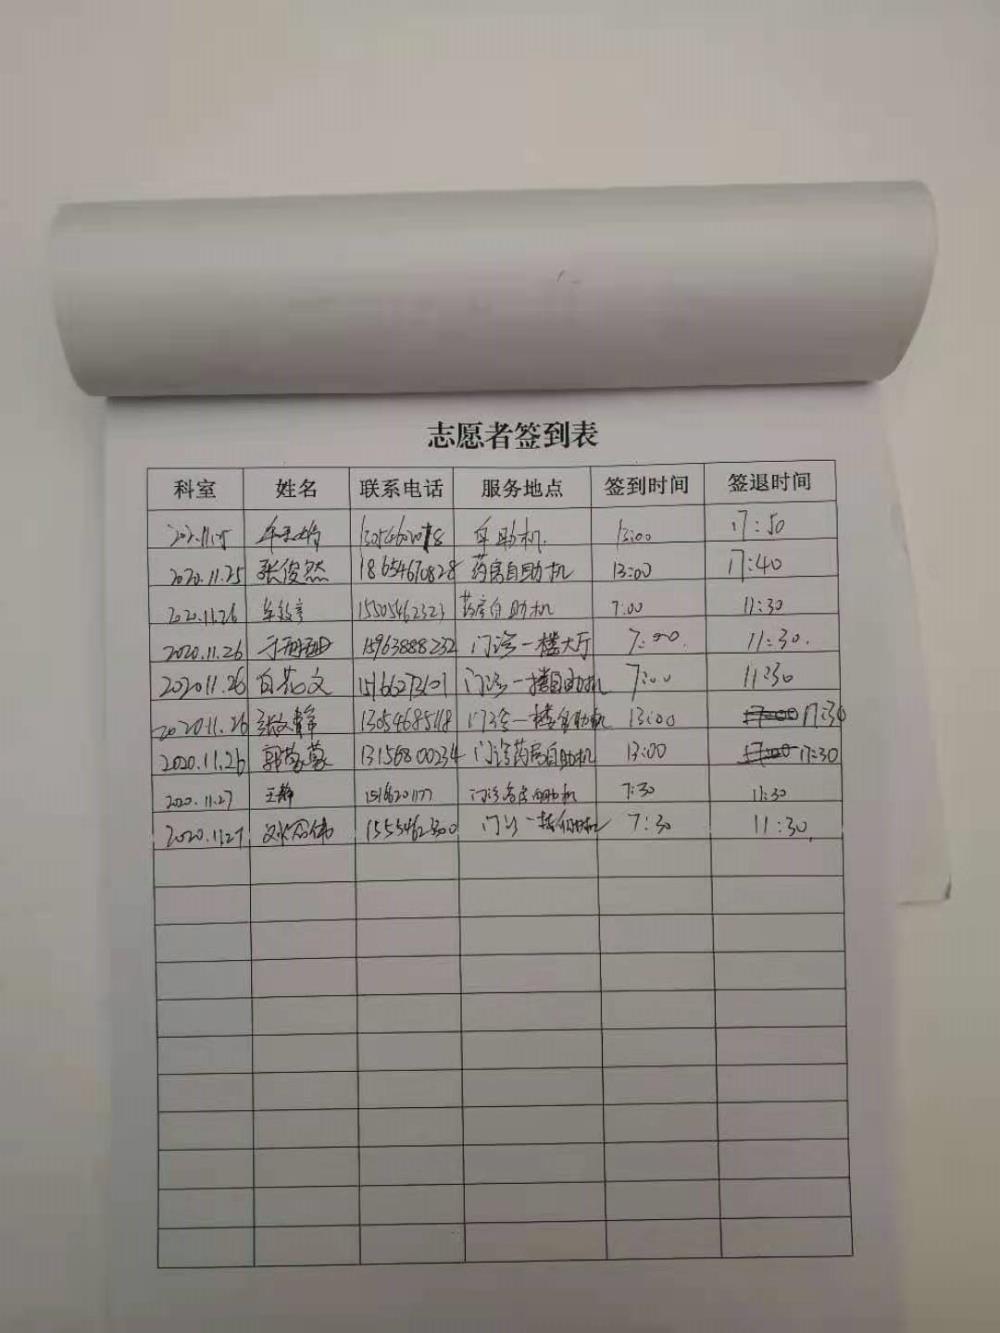 志愿者签到表
科室 姓名 联系电话 服务地点 签到时间 签退时间
自助机. 13:00 17:50
2020.11.25 张俊然 18654670828 药房自助机 13:00 17:40
2020.11.26 15505462323 药房自助机 7:00 11:30
2020.11.26 15963888232 门诊一楼大厅 7:00. 11:30.
2020 11.26 白花文 15166273101 门诊一楼自助机 7:00 11:30
2020 11.26 13054685118 门诊一楼自助机 13:00 17:30
2020.11.26 郭蒙蒙 13156800234 门诊药房自助机 13:00 17:30
2020.11.27 王静 门诊药房自助机 7:30 11:30
2020.11.27 门诊一楼自助机 7:30 11:30.